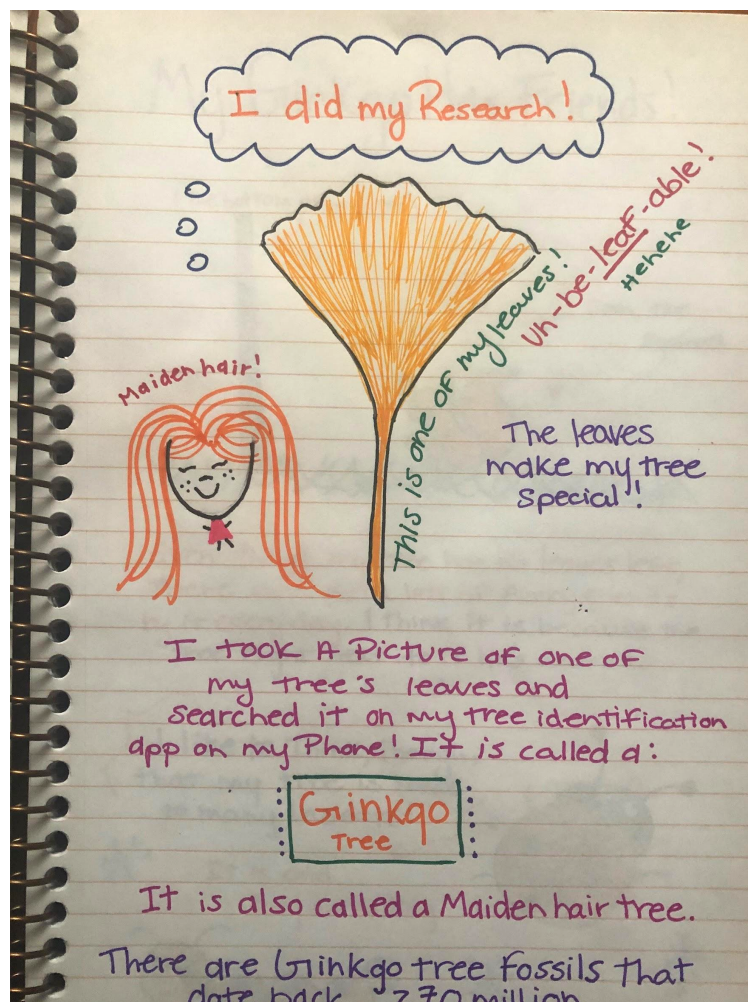 I did my Research!
Uh-be-leaf-able!
Hehehe
This is one of my leaves!
Maiden hair!
The leaves
make my tree
special!
I took A Picture of one of
my tree's leaves and
searched it on my tree identification
app on my Phone! It is called a:
Ginkgo
Tree
It is also called a Maidenhair tree.
There are Ginkgo tree fossils that
date back 270 million